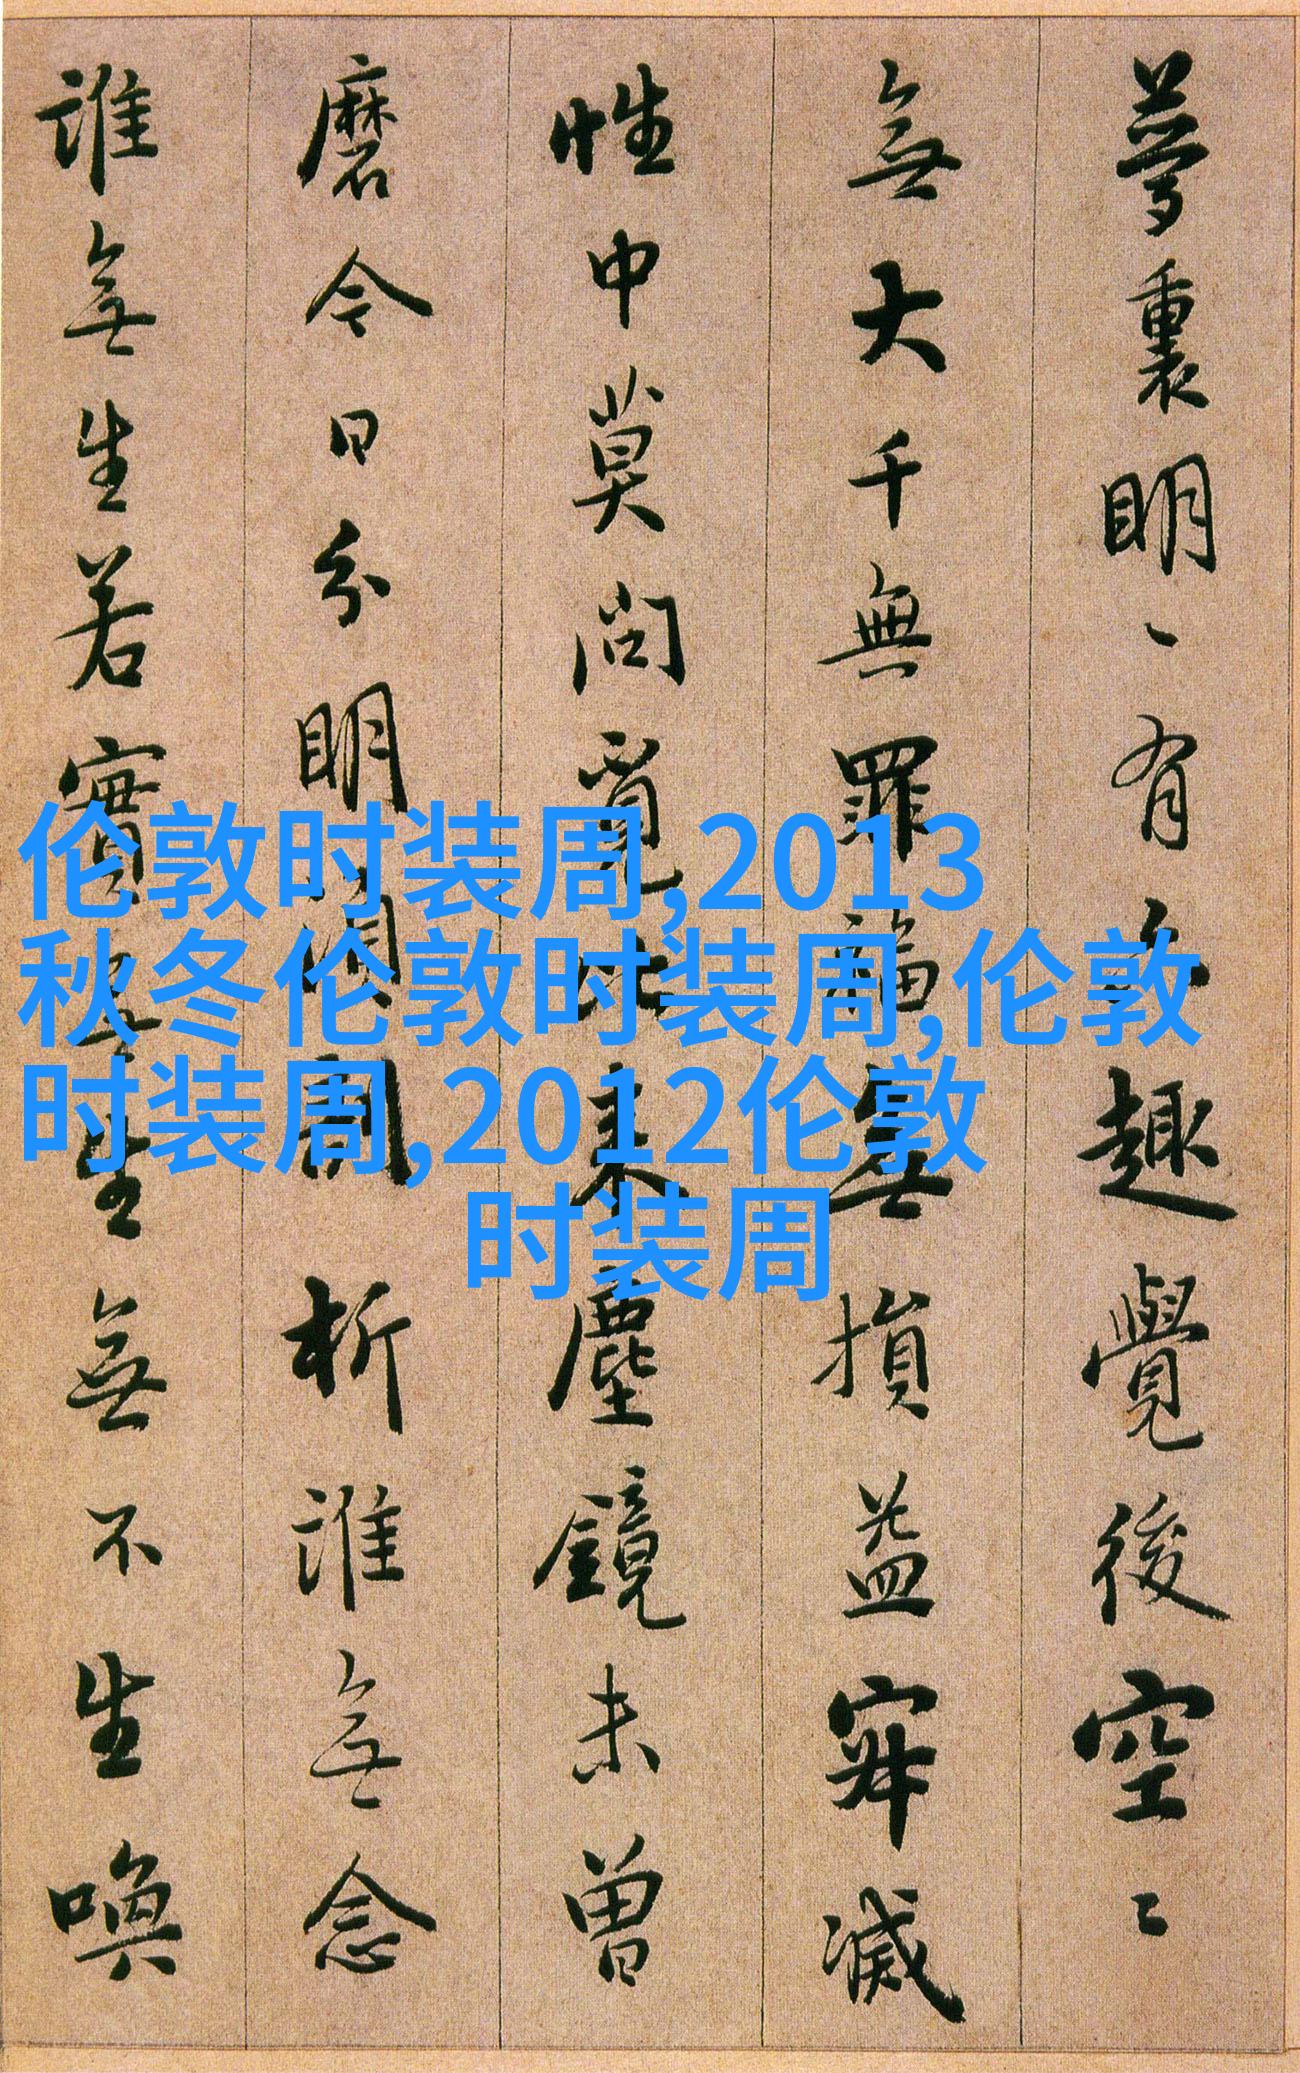 夢裏明明有六趣覺後空空
無大千無罪福無損益寂滅
性中莫問覓比来塵鏡未曾
磨今日分明須剖析誰無念
誰無生若實無生無不生喚
伦敦时装周,2013
秋冬伦敦时装周,伦敦
时装周,2012伦敦
时装周